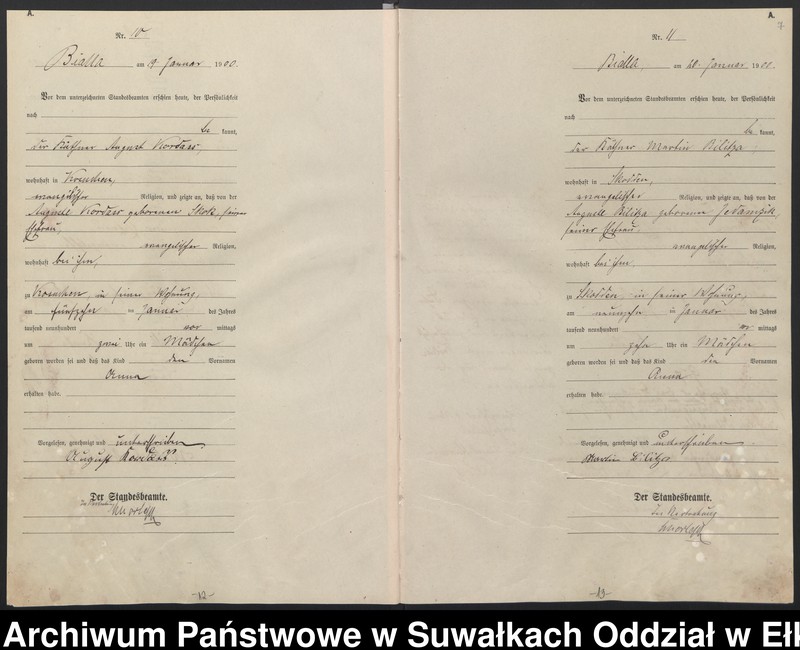 A.
Nr. 10
Bialla am 19 Januar 1900.
Vor dem unterzeichneten Standesbeamten erschien heute, der Persönlichkeit
nach
be kannt,
der Käthner August Kordass,
wohnhaft in
evangelischer Religion, und zeigte an, daß von der
Auguste Kordass geborenen Skok, seiner
Ehefrau,
evangelischer Religion,
wohnhaft bei ihm,
zu in seiner Wohnung,
am fünfzehn ten Januar des Jahres
tausend neunhundert vor mittags
um zwei Uhr ein Mädchen
geboren worden sei und daß das Kind den Vornamen
Anna
erhalten habe.
Vorgelesen, genehmigt und unterschrieben
August Kordass
Der Standesbeamte.
-12-
A.
7
Nr. 11
Bialla, am 20. Januar 1900.
Vor dem unterzeichneten Standesbeamten erschien heute, der Persönlichkeit
nach
be kannt,
der Käthner Martin Bilitza
wohnhaft in Skodden,
evangelischer Religion, und zeigte an, daß von der
Auguste Bilitza geborenen
seiner Ehefrau,
evangelischer Religion,
wohnhaft bei ihm,
zu Skodden, in seiner Wohnung,
am neunzehn ten Januar des Jahres
tausend neunhundert vor mittags
um zehn Uhr ein Mädchen
geboren worden sei und daß das Kind den Vornamen
Anna
erhalten habe.
Vorgelesen, genehmigt und unterschrieben
Martin Bilitza
Der Standesbeamte.
In Vertretung
-13-
Archiwum Państwowe w Suwałkach Oddział w Ełk